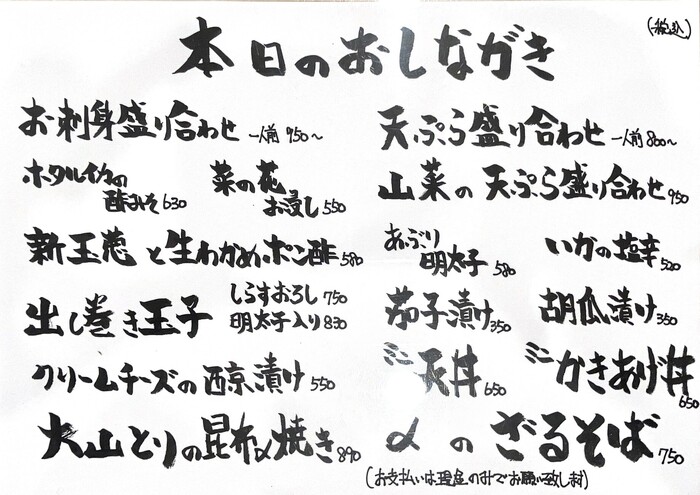 (税込)
本日のおしながき
お刺身盛り合わせ 一人前 950～
ホタルイカの酢みそ 630
菜の花お浸し 550
新玉葱と生わかめ ポン酢 580
出し巻き玉子 しらすおろし 750
明太子入り 830
クリームチーズの西京漬け 550
大山とりの昆布〆焼き 890
天ぷら盛り合わせ 一人前 800～
山菜の天ぷら盛り合わせ 950
あぶり明太子 580
いかの塩辛 520
茄子漬け 350
胡瓜漬け 350
ミニ天丼 650
ミニかきあげ丼 650
〆のざるそば 750
(お支払いは現金のみでお願い致します)